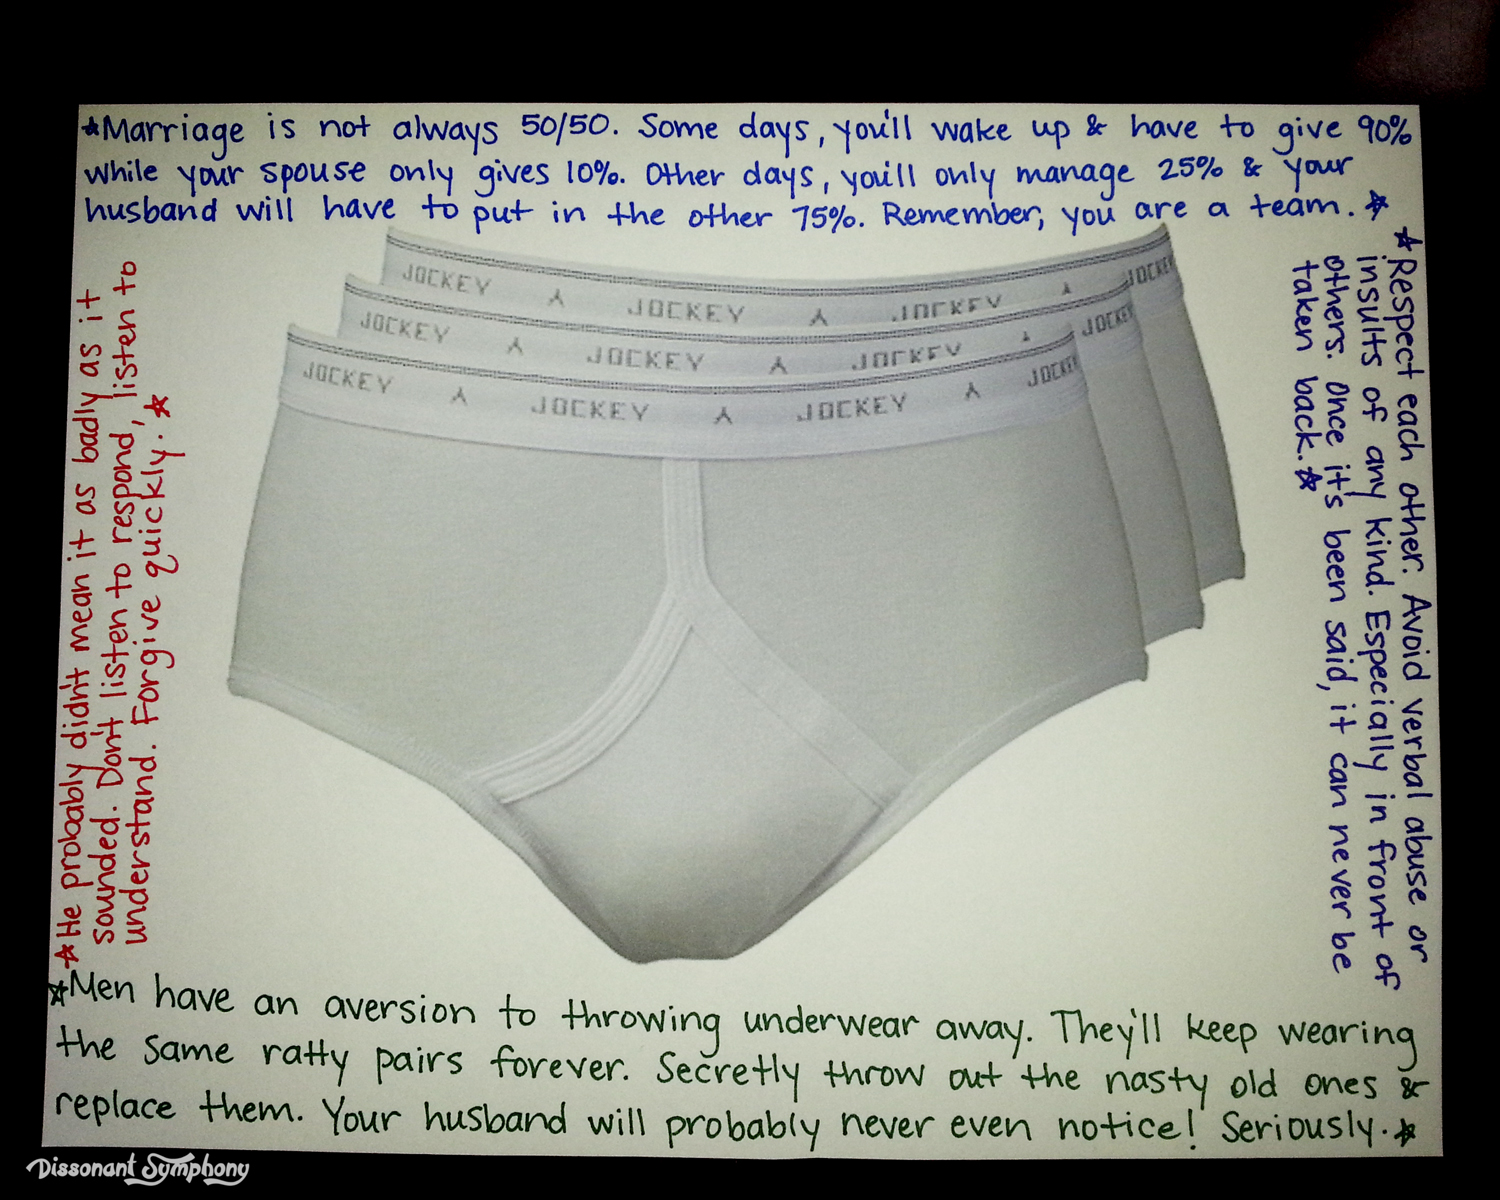 ★Marriage is not always 50/50. Some days, you'll wake up & have to give 90%
while your spouse only gives 10%. Other days, you'll only manage 25% & your
husband will have to put in the other 75%. Remember, you are a team.★
★Respect each other. Avoid verbal abuse or
insults of any kind. Especially in front of
others. Once it's been said, it can never be
taken back.★
★He probably didn't mean it as badly as it
sounded. Don't listen to respond, listen to
understand. Forgive quickly.★
JOCKEY JOCKEY JOCKEY JOCKEY
JOCKEY JOCKEY JOCKEY JOCKEY
JOCKEY JOCKEY JOCKEY JOCKEY
★Men have an aversion to throwing underwear away. They'll keep wearing
the same ratty pairs forever. Secretly throw out the nasty old ones &
replace them. Your husband will probably never even notice! Seriously.★
Dissonant Symphony